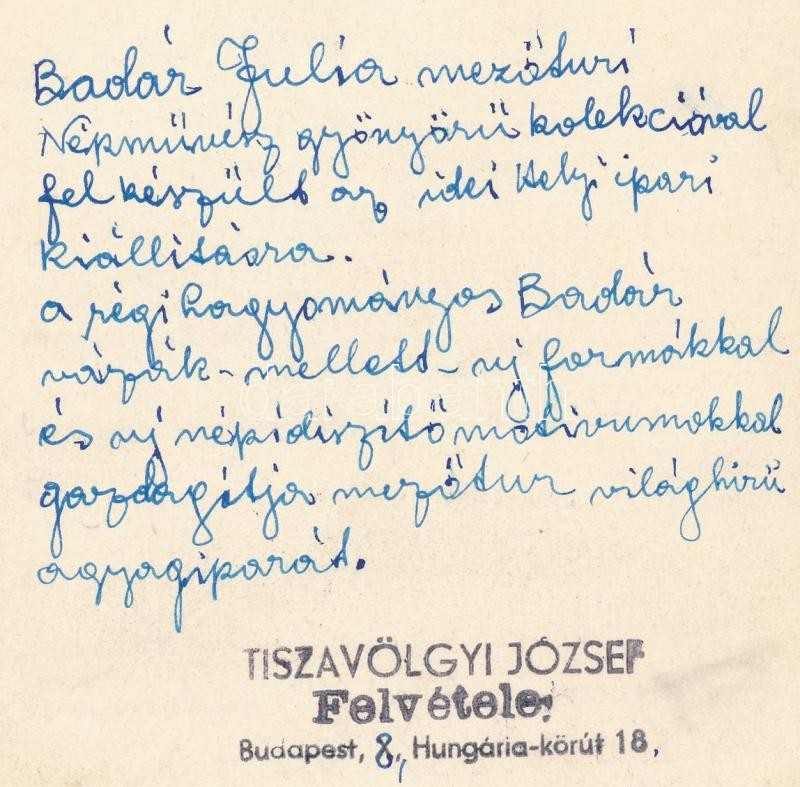 Badár Julia mezőturi
Népművész gyönyörű kolekcióval
felkészült az idei Helyi ipari
kiállitásra.
a régi hagyományos Badár
vázák - mellett - uj formákkal
és uj népi diszítő motivumokkal
gazdagítja mezőtur világhirű
agyagiparát.
TISZAVÖLGYI JÓZSEF
Felvétele:
Budapest, 8, Hungária-körút 18.